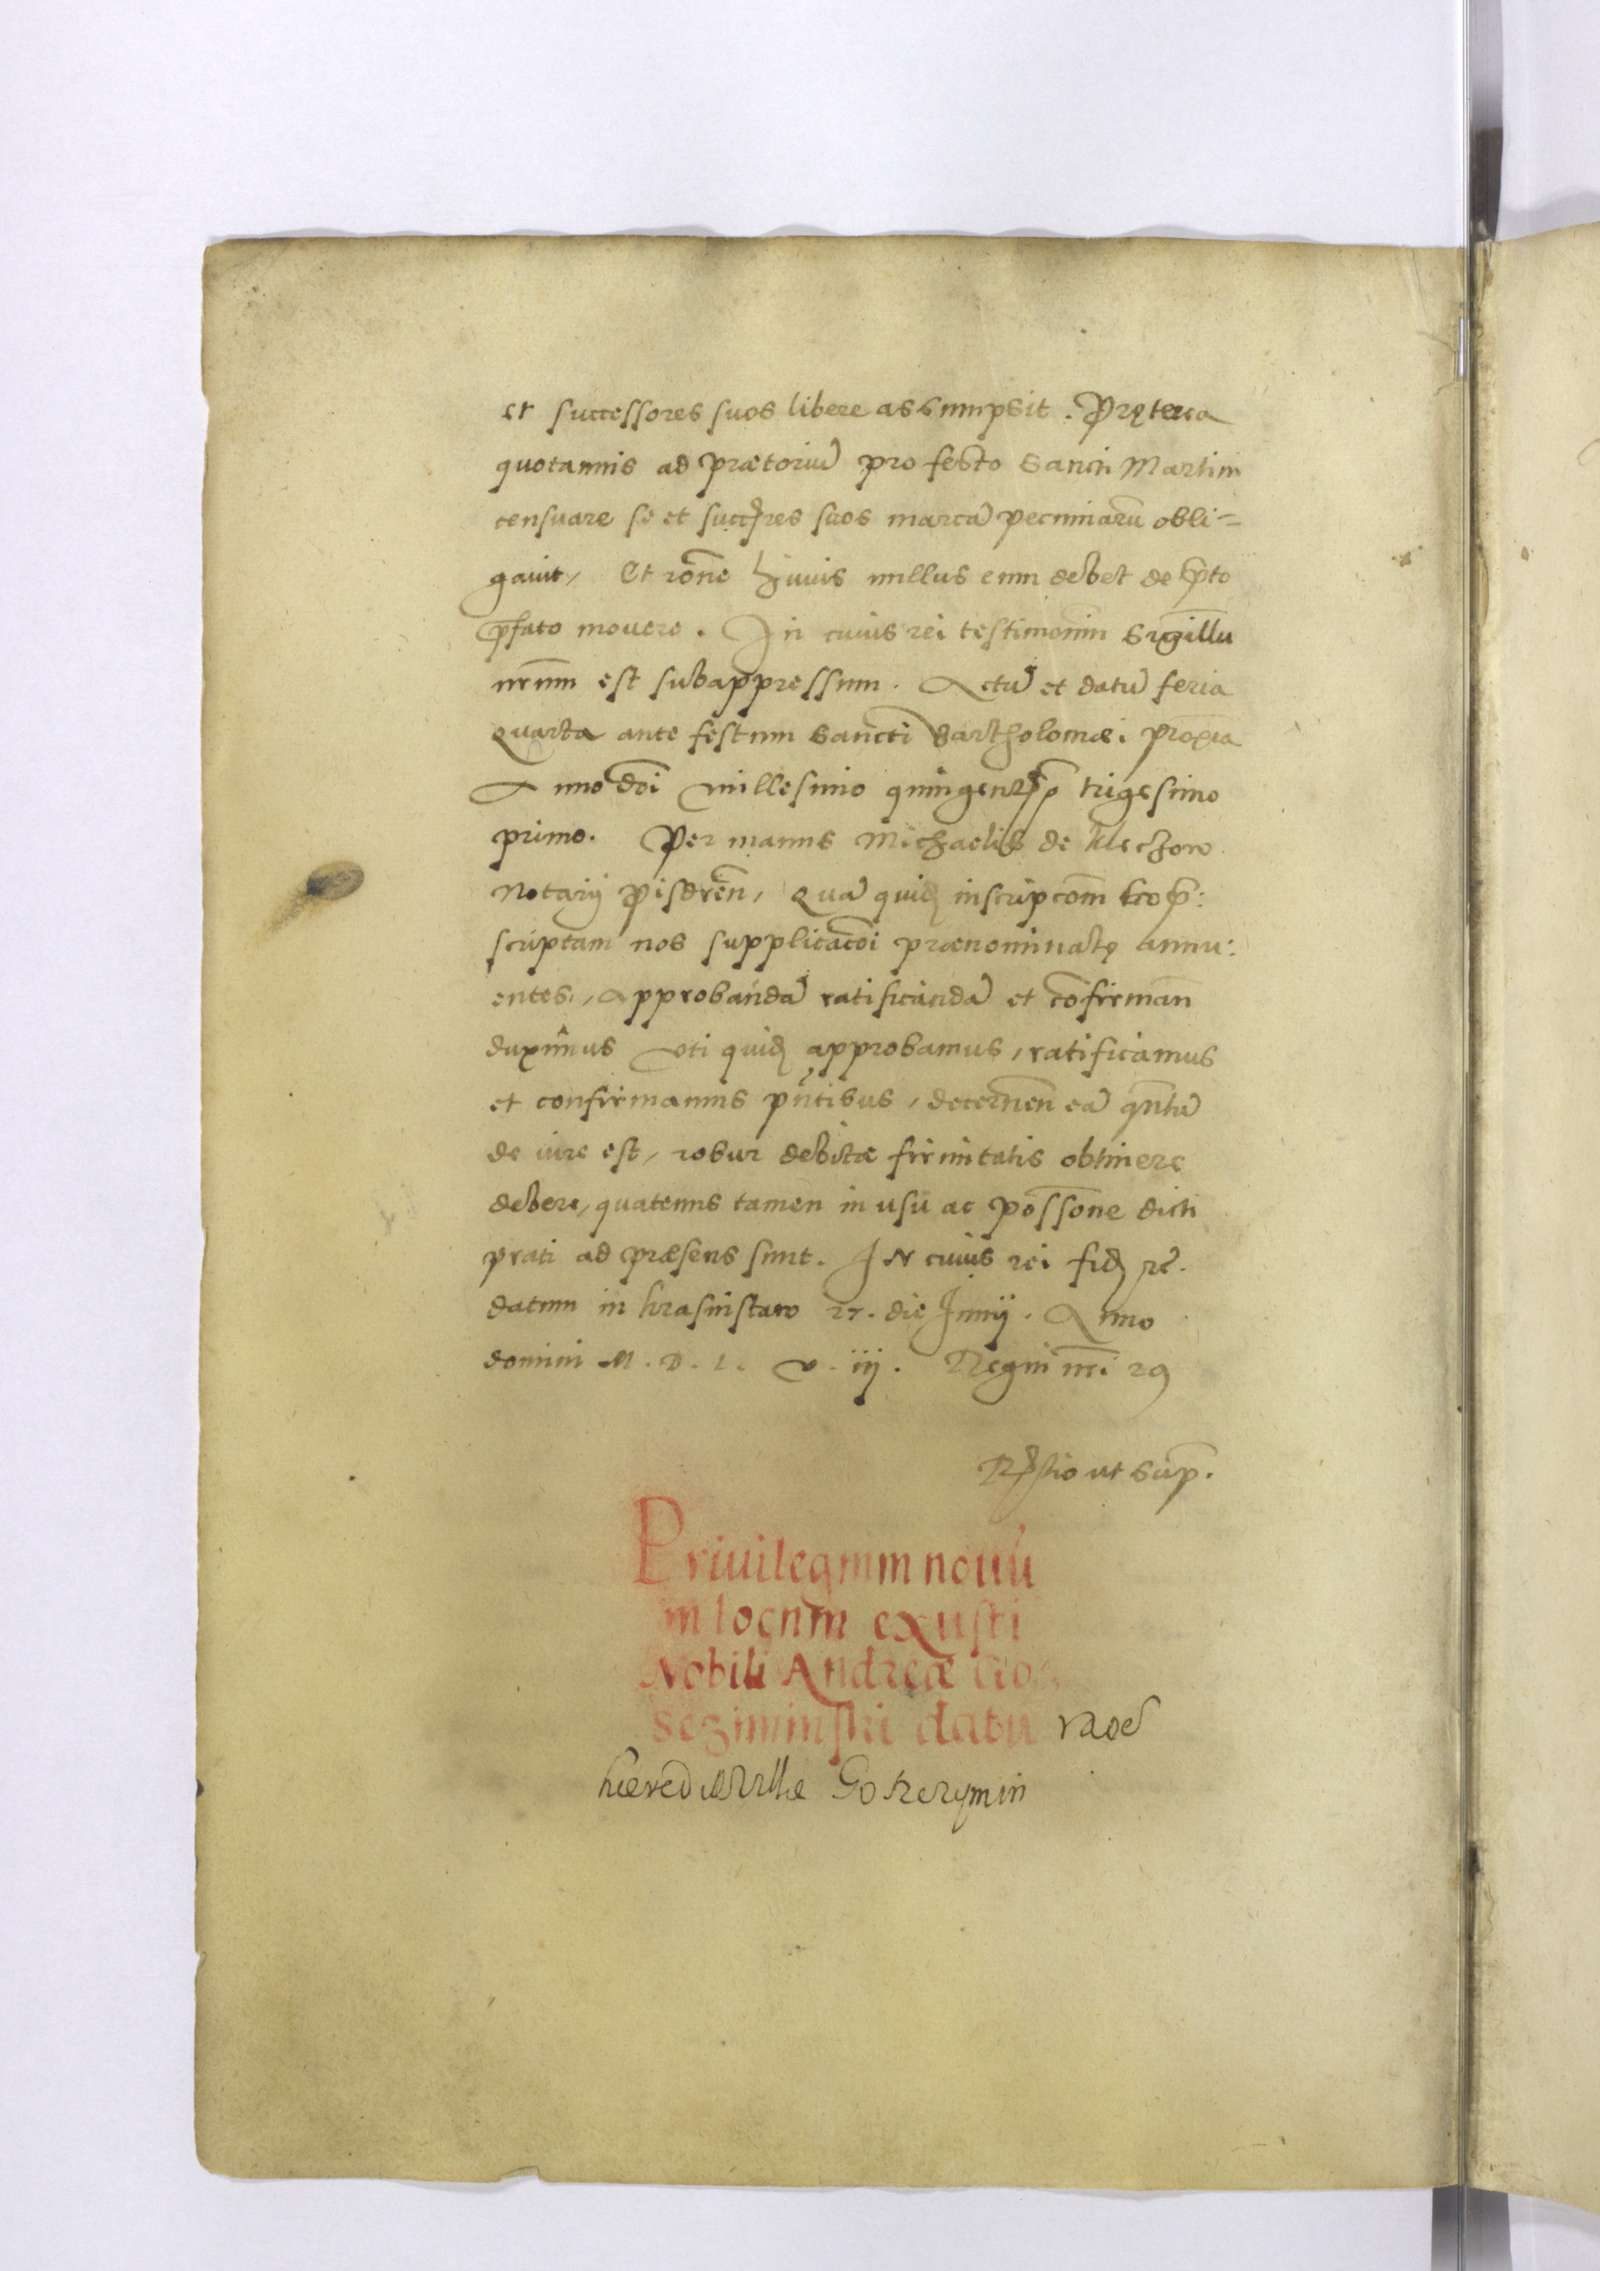 et successores suos libere assumpsit. Pręterea
quotannis ad prætoriũ pro festo Sancti Martini
censuare se et succs̃res suos marcã pecuniarũ obli=
gavit, Et rõne huius nullus eum debet de p̃to
p̃fato mouere. In cuius rei testimonium Sigillũ
nr̃um est subappressum. Actũ et datũ feria
Quarta ante festum Sancti Bartholomæi proxĩa
Anno dñi millesimo quingentesimo trigesimo
primo. Per manus Michaelis de Klechow
Notarij, Quã quid inscripcõm
scriptam nos supplicacõi prænominatę annu:
entes, approbandã ratificandã et cõfirmañ
duximus vti quid approbamus, ratificamus
et confirmamus pñtibus, decerneñ eã qñtũ
de iure est, robur debitæ firmitatis obtinere
debere, quatenus tamen in usu ac possõne dicti
prati ad præsens sunt. IN cuius rei fid rẽ.
datum in Krasnistaw 27. die Junij. Anno
domini M. D. L. v. iij. Regni nr̃i 29
ut sup̃.
Priuilegium nouũ
in locum exusti
Nobili Andreæ
datũ
hæred villæ